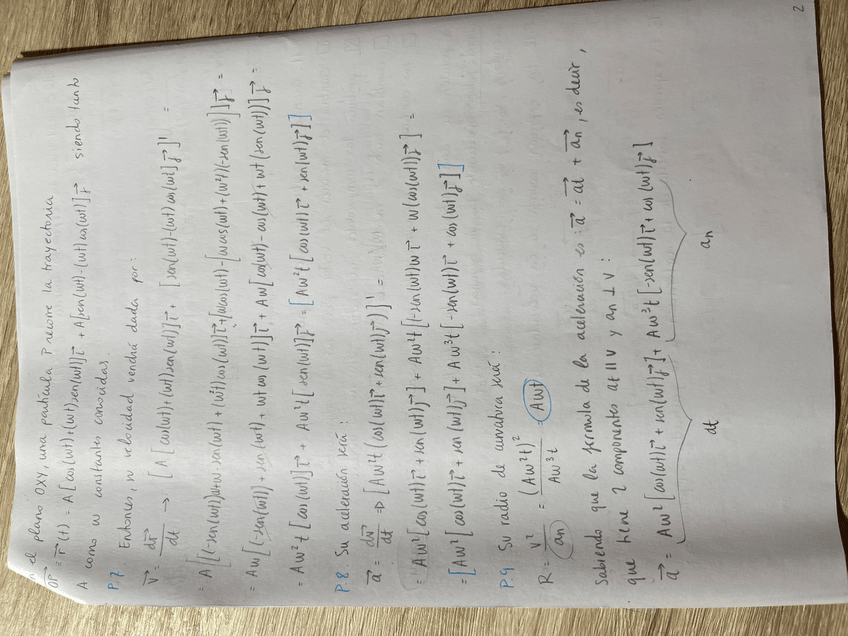 el plano OXY, una partícula P recorre la trayectoria
OP = r(t) = A[cos(wt)+(wt)sen(wt)]i + A[sen(wt)-(wt)cos(wt)]j siendo tanto
A como w constantes conocidas
P.7 Entonces, su velocidad vendrá dada por:
v = dr/dt → [A[cos(wt)+(wt)sen(wt)]i + [sen(wt)-(wt)cos(wt)]j]' =
= A[(-sen(wt))w+w·sen(wt)+(w²t)cos(wt)]i+[wcos(wt)-[wcos(wt)+(w²t)(-sen(wt))]]j =
= Aw[(-sen(wt))+sen(wt)+wt cos(wt)]i + Aw[cos(wt)-cos(wt)+wt(sen(wt))]j =
= Aw²t[cos(wt)]i + Aw²t[sen(wt)]j = [Aw²t[cos(wt)i+sen(wt)j]]
P.8 Su aceleración será:
a = dv/dt ⇒ [Aw²t(cos(wt)i+sen(wt)j)]' =
= Aw²[cos(wt)i+sen(wt)j]+Aw²t[(-sen(wt)wi+w(cos(wt))j] =
= [Aw²[cos(wt)i+sen(wt)j]+Aw³t[-sen(wt)i+cos(wt)j]]
P.9 Su radio de curvatura será:
R = v²/an = (Aw²t)²/Aw³t = Awt
Sabiendo que la fórmula de la aceleración es: a = at + an, es decir,
que tiene 2 componentes at || v y an ⊥ v:
a = Aw²[cos(wt)i+sen(wt)j]+Aw³t[-sen(wt)i+cos(wt)j]
at an
2